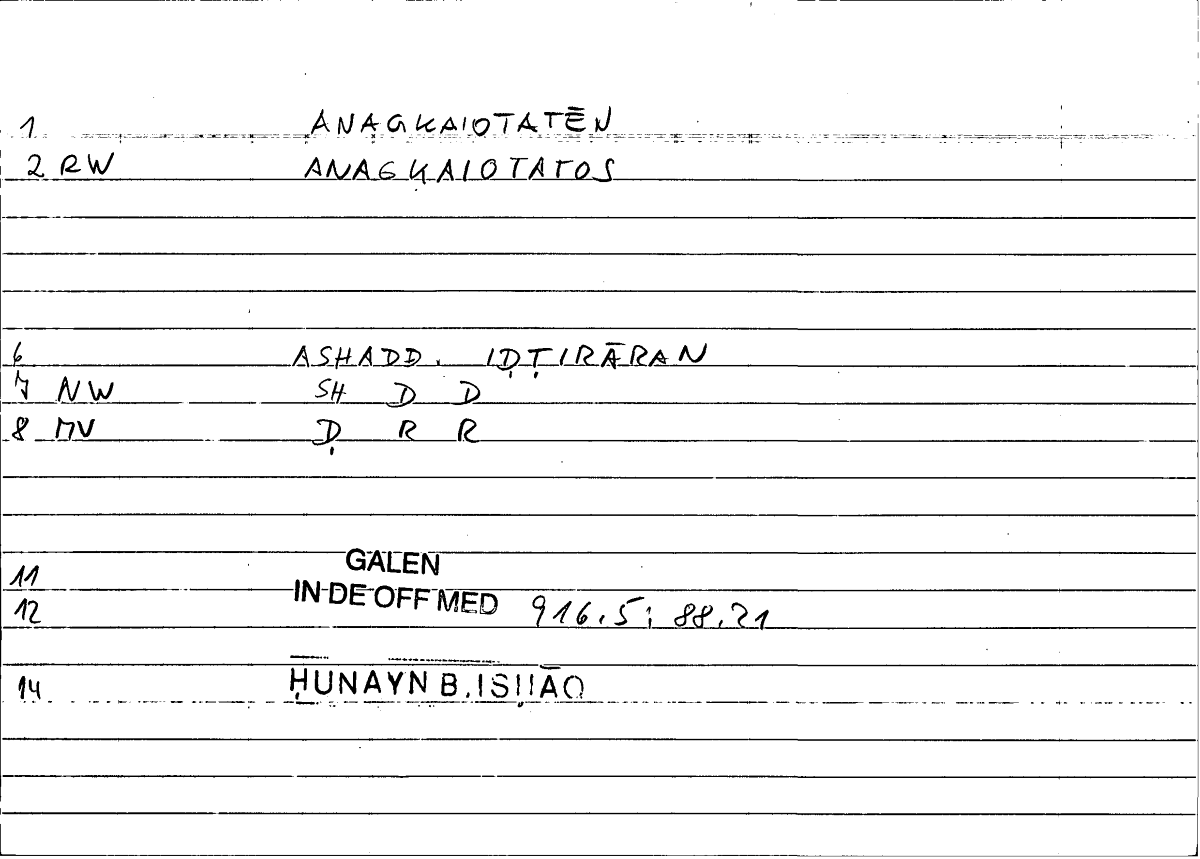 1 ANAGKAIOTATĒN
2 RW ANAGKAIOTATOS
6 ASHADD. IḌṬIRĀRAN
7 NW SH D D
8 MV Ḍ R R
11 GALEN
12 IN DE OFF MED 916.5; 88.21
14 ḤUNAYN B. ISḤĀQ